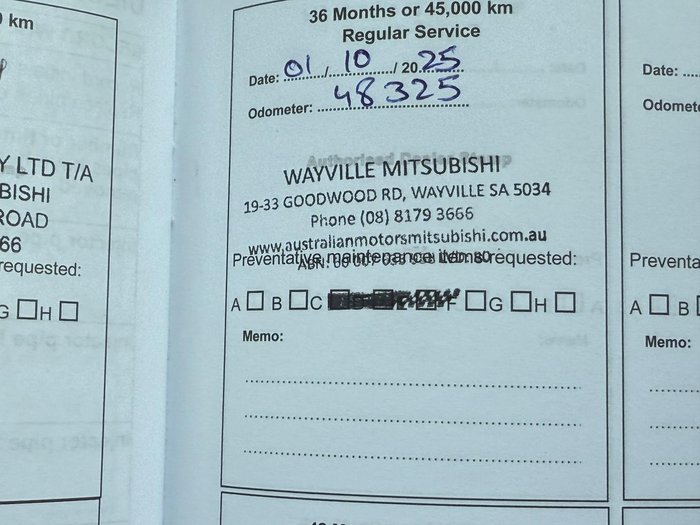 km
Y LTD T/A
BISHI
ROAD
66
requested:
G □ H □
36 Months or 45,000 km
Regular Service
Date: 01 / 10 / 20 25
Odometer: 48325
Authorised Dealer Stamp
WAYVILLE MITSUBISHI
19-33 GOODWOOD RD, WAYVILLE SA 5034
Phone (08) 8179 3666
www.australianmotorsmitsubishi.com.au
Preventative maintenance items requested:
ABN:
A □ B □ C F □ G □ H □
Memo:
Date:
Odomete
Preventa
A □ B
Memo: